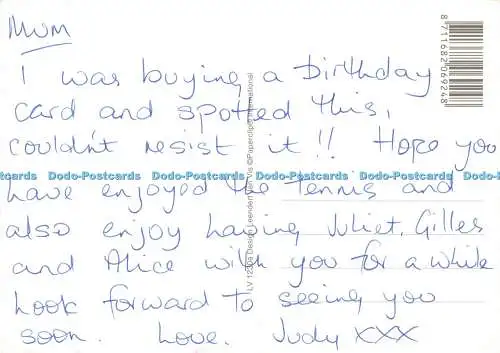 Mum
I was buying a Birthday
card and spotted this,
couldn't resist it!! Hope you
Dodo-Postcards Dodo-Postcards Dodo-Postcards Dodo-Postcards
have enjoyed the Tennis and
also enjoy having Juliet, Gilles
and Alice with you for a while
Look forward to seeing you
soon. Love. Judy xxx
Paperclip International
8711682069248